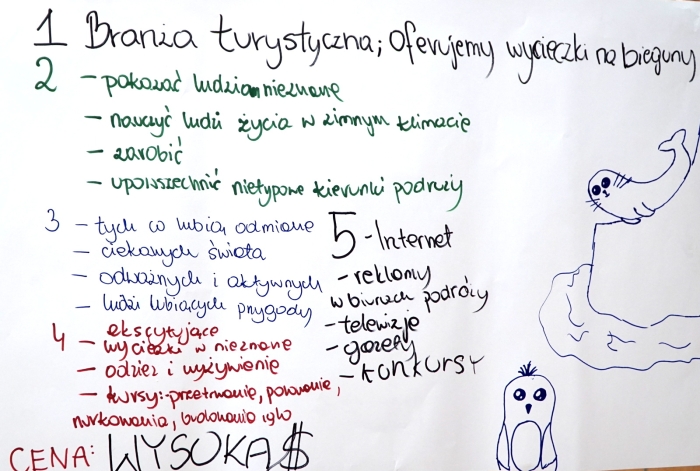 1 Branża turystyczna; oferujemy wycieczki na bieguny
2 - pokazać ludziom nieznane
- nauczyć ludzi życia w zimnym klimacie
- zarobić
- upowszechnić nietypowe kierunki podróży
3 - tych co lubią odmianę
- ciekawych świata
- odważnych i aktywnych
- ludzi lubiących przygody
4 - ekscytujące
wycieczki w nieznane
- odzież i wyżywienie
- kursy:-przetrwanie, polowanie,
nurkowania, budowania igło
5 - Internet
- reklamy
w biurach podróży
- telewizje
- gazety
- konkursy
CENA: WYSOKA $